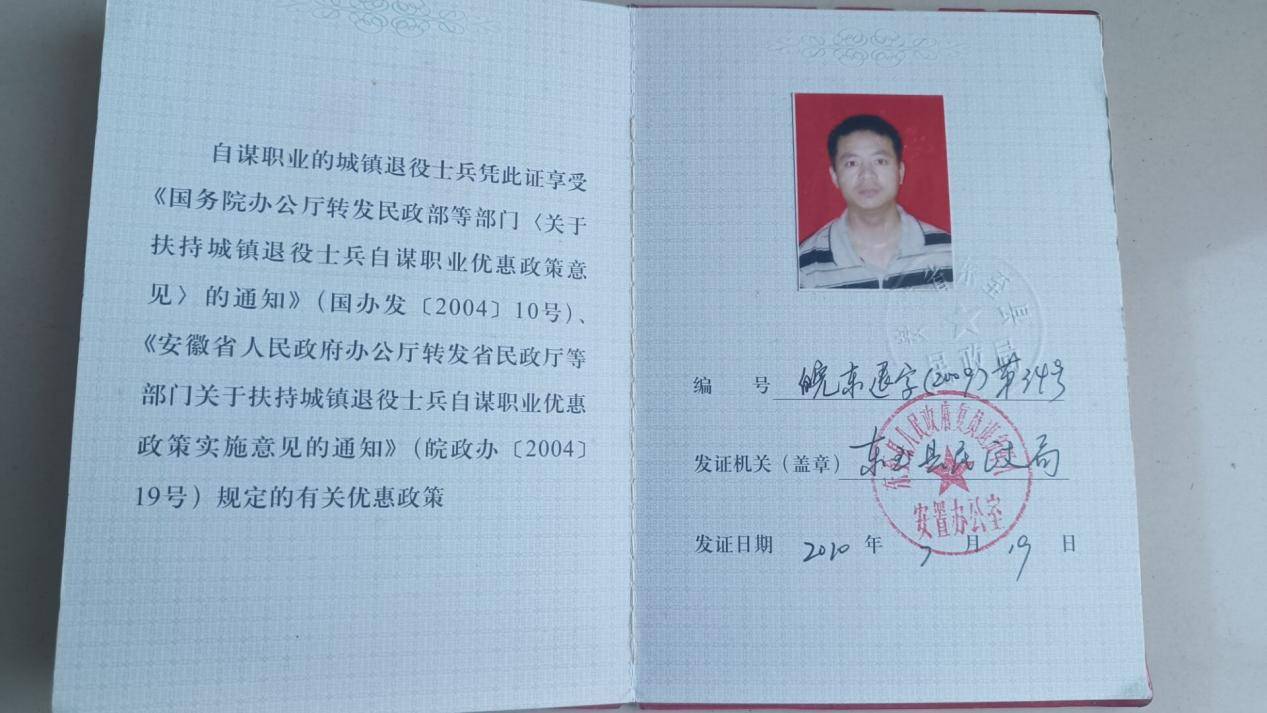 自谋职业的城镇退役士兵凭此证享受
《国务院办公厅转发民政部等部门〈关于
扶持城镇退役士兵自谋职业优惠政策意
见〉的通知》（国办发〔2004〕10号）、
《安徽省人民政府办公厅转发省民政厅等
部门关于扶持城镇退役士兵自谋职业优惠
政策实施意见的通知》（皖政办〔2004〕
19号）规定的有关优惠政策
编 号 皖东退字(2009)第34号
发证机关（盖章）东至县民政局
安置办公室
发证日期 2010 年 7 月 19 日